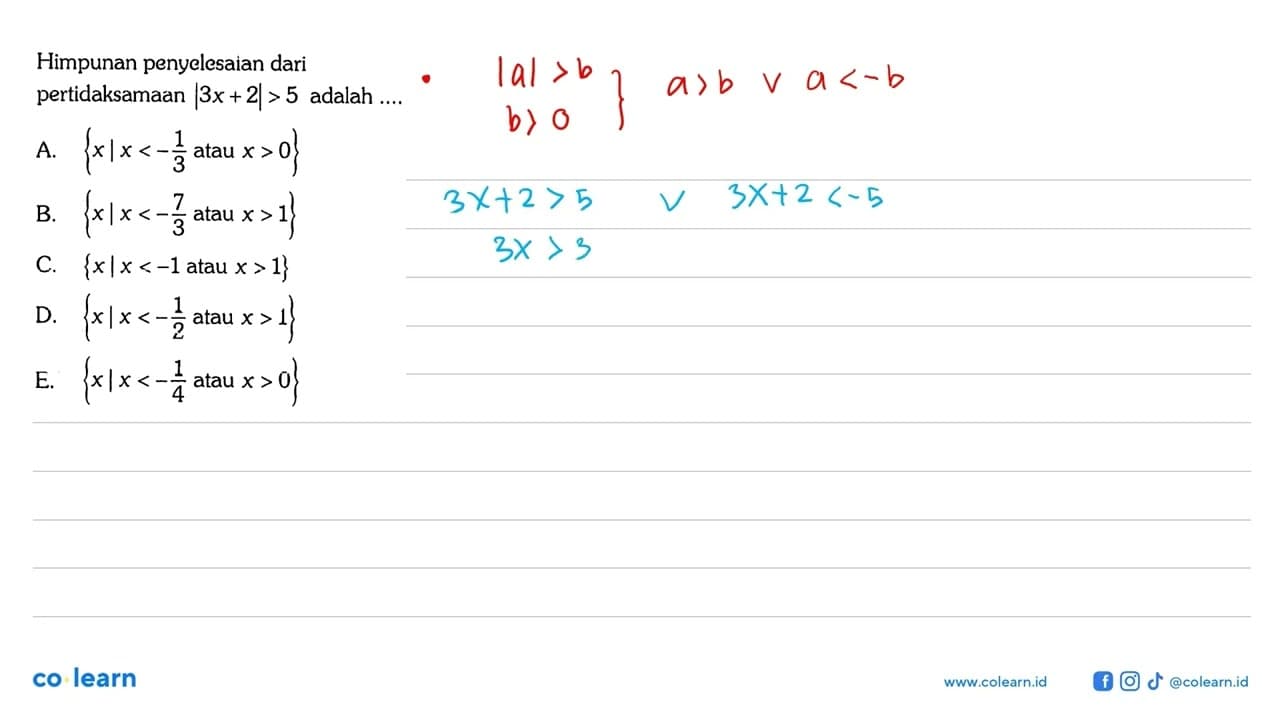 Himpunan penyelesaian dari
pertidaksamaan |3x + 2| > 5 adalah ....
A. {x | x < -1/3 atau x > 0}
B. {x | x < -7/3 atau x > 1}
C. {x | x < -1 atau x > 1}
D. {x | x < -1/2 atau x > 1}
E. {x | x < -1/4 atau x > 0}
• |a| > b
b > 0 } a > b v a < -b
3x + 2 > 5 v 3x + 2 < -5
3x > 3
co learn
www.colearn.id
@colearn.id